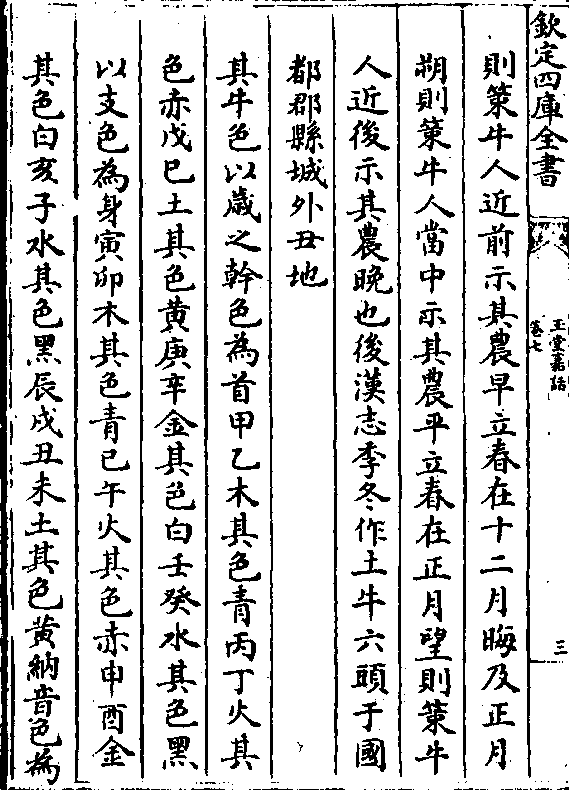 欽定四庫全書
玉堂嘉話
卷七
三
則策牛人近前示其農早立春在十二月晦及正月
朔則策牛人當中示其農平立春在正月望則策牛
人近後示其農晚也後漢志季冬作土牛六頭于國
都郡縣城外丑地
其牛色以歲之幹色為首甲乙木其色青丙丁火其
色赤戊巳土其色黄庚辛金其色白壬癸水其色黑
以支色為身寅卯木其色青巳午火其色赤申酉金
其色白亥子水其色黑辰戌丑未土其色黄納音色為